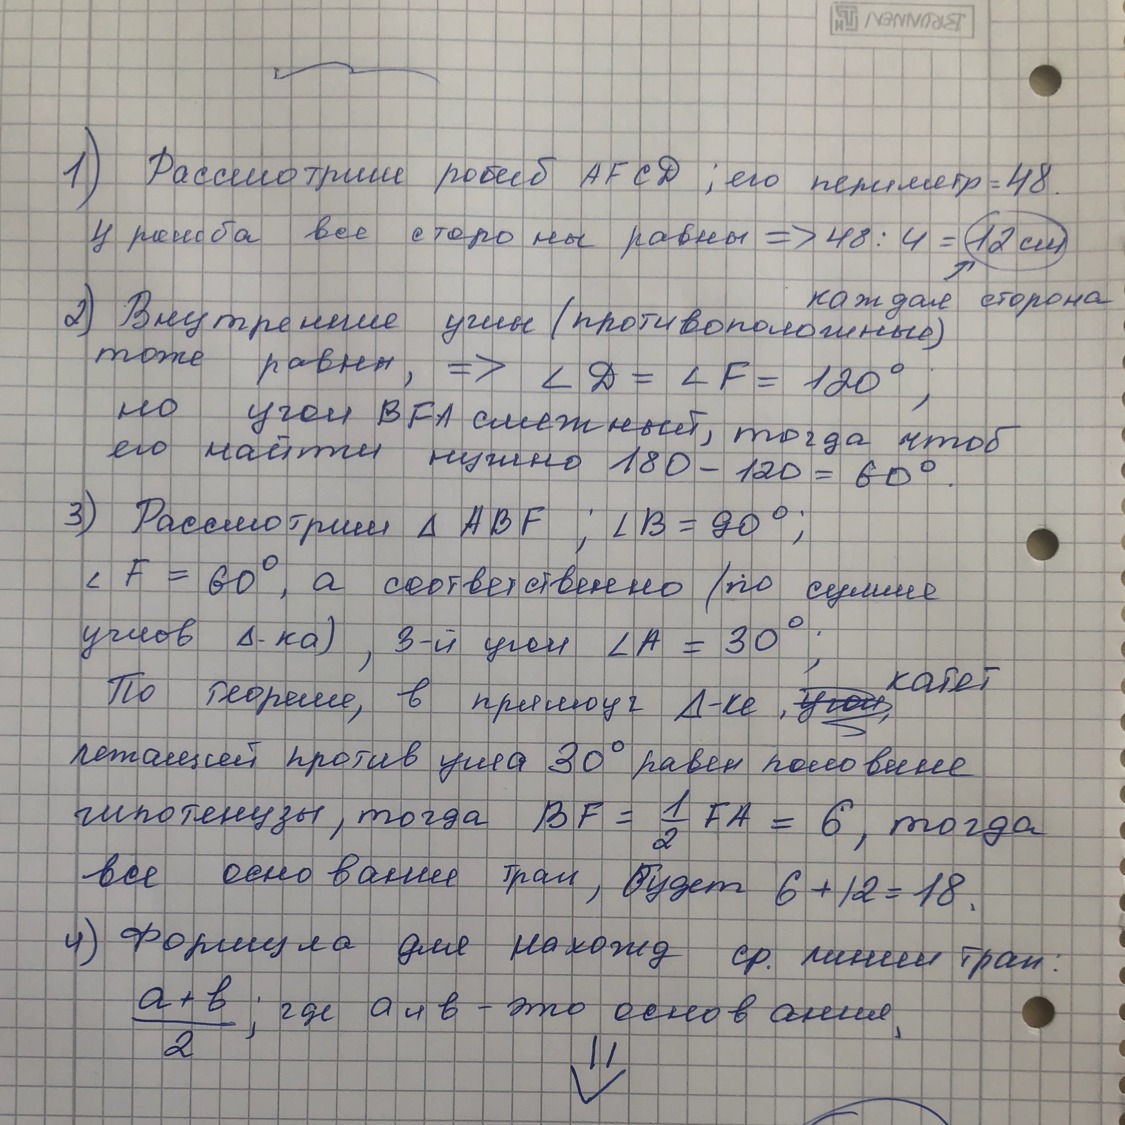 BRUNNEN
1) Рассмотрим ромб AFCD ; его периметр = 48.
У ромба все стороны равны => 48 : 4 = 12 см
каждая сторона
2) Внутренние углы (противоположные)
тоже равны, => ∠D = ∠F = 120° ;
но угол BFA смежный, тогда чтоб
его найти нужно 180 - 120 = 60°.
3) Рассмотрим Δ ABF ; ∠B = 90° ;
∠F = 60°, а соответственно (по сумме
углов Δ-ка) , 3-й угол ∠A = 30° ;
По теореме, в прямоуг Δ-ке , катет
лежащий против угла 30° равен половине
гипотенузы, тогда BF = 1/2 FA = 6, тогда
все основание трап, будет 6 + 12 = 18.
4) Формула для нахожд ср. линии трап:
a + b / 2 ; где a и b - это основания,
⇓